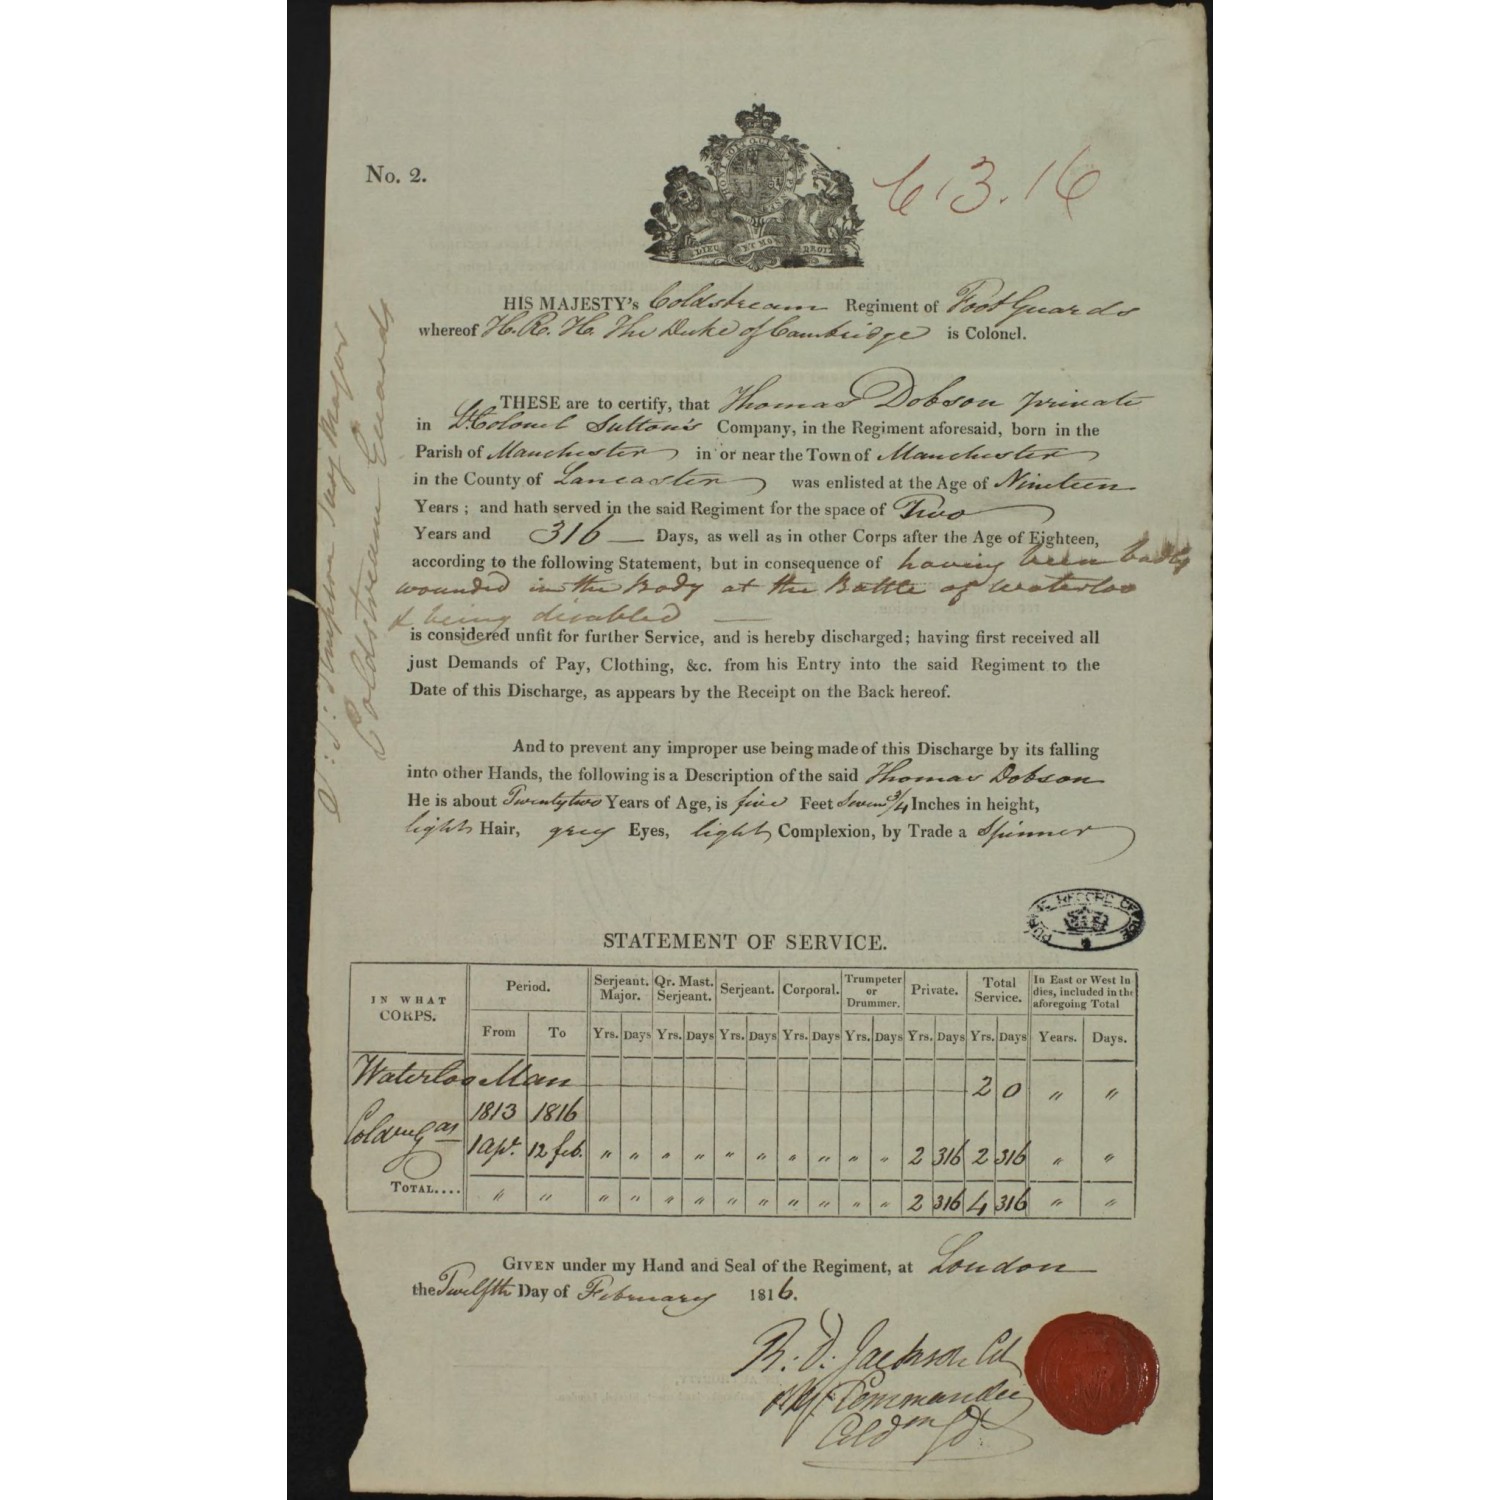 No. 2.
HONI SOIT QUI MAL Y PENSE
DIEU ET MON DROIT
6.3.16
HIS MAJESTY's Coldstream Regiment of Foot Guards
whereof H. R. H. The Duke of Cambridge is Colonel.
THESE are to certify, that Thomas Dobson private
in Lt. Colonel Sutton's Company, in the Regiment aforesaid, born in the
Parish of Manchester in or near the Town of Manchester
in the County of Lancaster was enlisted at the Age of Nineteen
Years; and hath served in the said Regiment for the space of Two
Years and 316 Days, as well as in other Corps after the Age of Eighteen,
according to the following Statement, but in consequence of having been badly
wounded in the Body at the Battle of Waterloo
& being disabled
is considered unfit for further Service, and is hereby discharged; having first received all
just Demands of Pay, Clothing, &c. from his Entry into the said Regiment to the
Date of this Discharge, as appears by the Receipt on the Back hereof.
And to prevent any improper use being made of this Discharge by its falling
into other Hands, the following is a Description of the said Thomas Dobson
He is about Twenty two Years of Age, is five Feet Seven 3/4 Inches in height,
light Hair, grey Eyes, light Complexion, by Trade a Spinner
Simpson Major
Coldstream Guards
PUBLIC RECORD OFFICE
STATEMENT OF SERVICE.
IN WHAT CORPS. Period. Serjeant. Major. Qr. Mast. Serjeant. Serjeant. Corporal. Trumpeter or Drummer. Private. Total Service. In East or West Indies, included in the aforegoing Total
From To Yrs. Days Yrs. Days Yrs. Days Yrs. Days Yrs. Days Yrs. Days Yrs. Days Years. Days.
Waterloo Man 2 0 " "
1813 1816
Coldm Gds 1 Apr. 12 feb. " " " " " " " " " " 2 316 2 316 " "
TOTAL.... " " " " " " " " " " " " 2 316 4 316 " "
GIVEN under my Hand and Seal of the Regiment, at London
the Twelfth Day of February 1816.
R: D: Jackson Col
Commanding
Coldm Gds